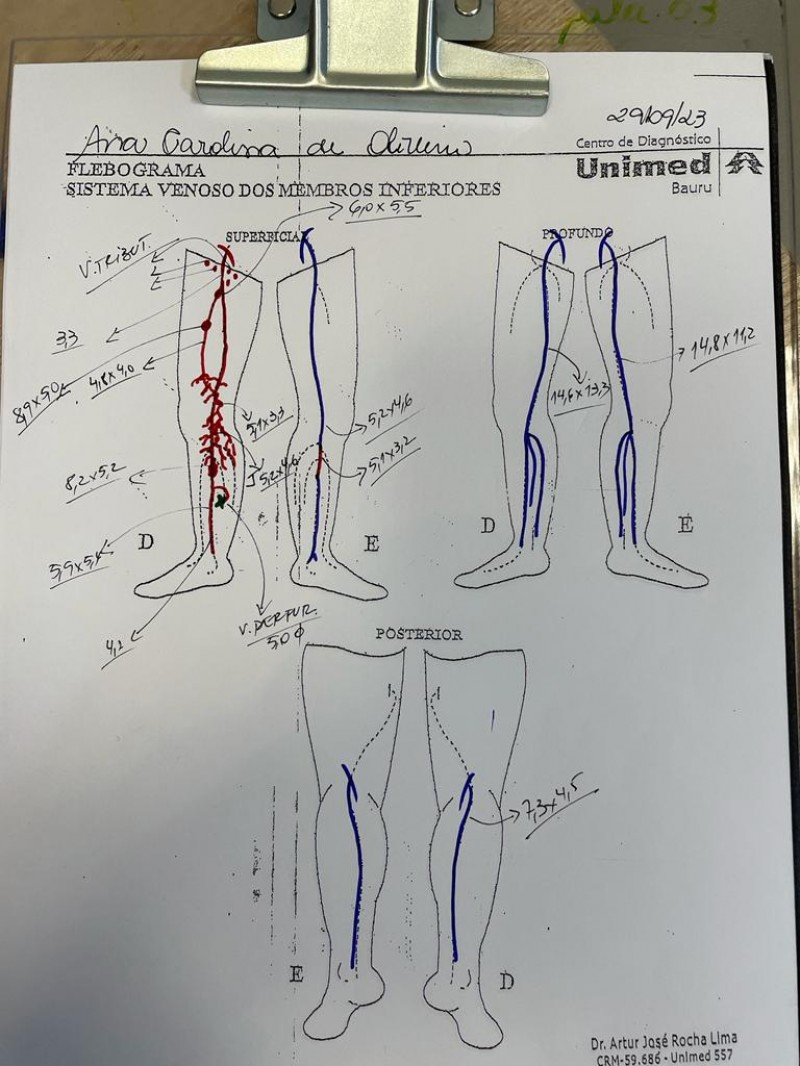 29/09/23
Ana Carolina de Oliveira
Centro de Diagnóstico
Unimed
Bauru
FLEBOGRAMA
SISTEMA VENOSO DOS MEMBROS INFERIORES
6,0 x 5,5
SUPERFICIAL
PROFUNDO
V. TRIBUT.
3,3
14,8 x 11,2
4,8 x 4,0
8,9 x 5,0
14,6 x 13,3
5,1 x 3,3
5,2 x 4,6
5,1 x 3,2
8,2 x 5,2
5,2 x 4,6
D
E
D
E
5,9 x 5,4
V. PERFUR.
5,0 ϕ
4,2
POSTERIOR
7,3 x 4,5
E
D
Dr. Artur José Rocha Lima
CRM-59.686 - Unimed 557